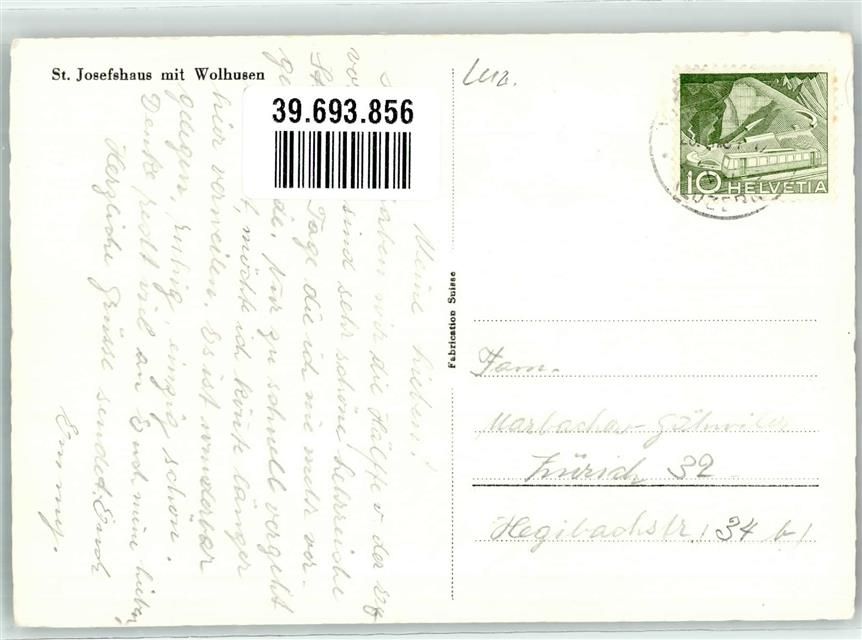 St. Josefshaus mit Wolhusen
39.693.856
Luz.
10 HELVETIA
LUZERN
Fabrication Suisse
Meine Lieben!
haben wir die Hälfte v. der
sind sehr schöne lehrreiche
Tage die ich nie mehr ver-
Nur zu schnell vergeht
möchte ich könnte länger
hier verweilen. Es ist wunderbar
gelegen, ruhig, einzig schön.
Denke recht viel an Euch meine Lieben,
Herzliche Grüsse sendet Euch
Emmy.
Fam.
Marbacher-Gähwiler
Zürich 32
Hegibachstr. 34 b/